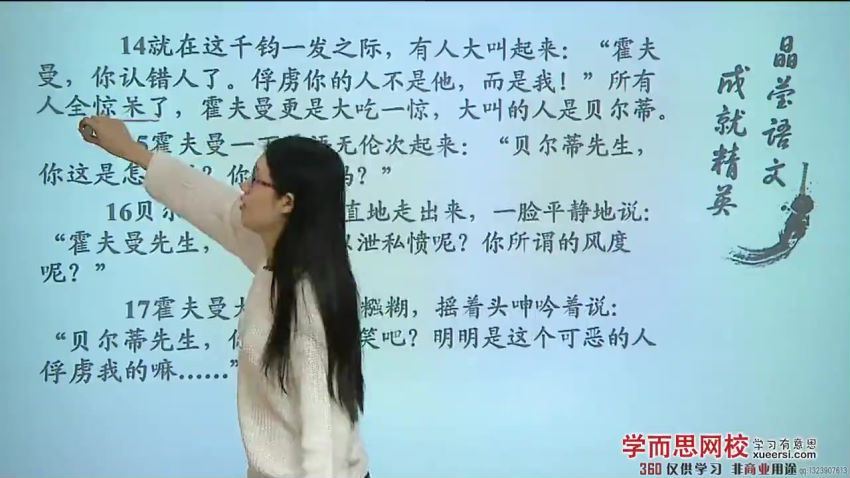 14就在这千钧一发之际，有人大叫起来：“霍夫
曼，你认错人了。俘虏你的人不是他，而是我！”所有
人全惊呆了，霍夫曼更是大吃一惊，大叫的人是贝尔蒂。
5霍夫曼一 无伦次起来：“贝尔蒂先生，
你这是怎 ？你 吗？”
16贝 直地走出来，一脸平静地说：
“霍夫曼先生， 泄私愤呢？你所谓的风度
呢？”
17霍夫曼 糊，摇着头呻吟着说：
“贝尔蒂先生， 笑吧？明明是这个可恶的人
俘虏我的嘛……”
晶莹语文
成就精英
学而思网校 学习有意思
xueersi.com
360仅供学习 非商业用途 qq:1323907613